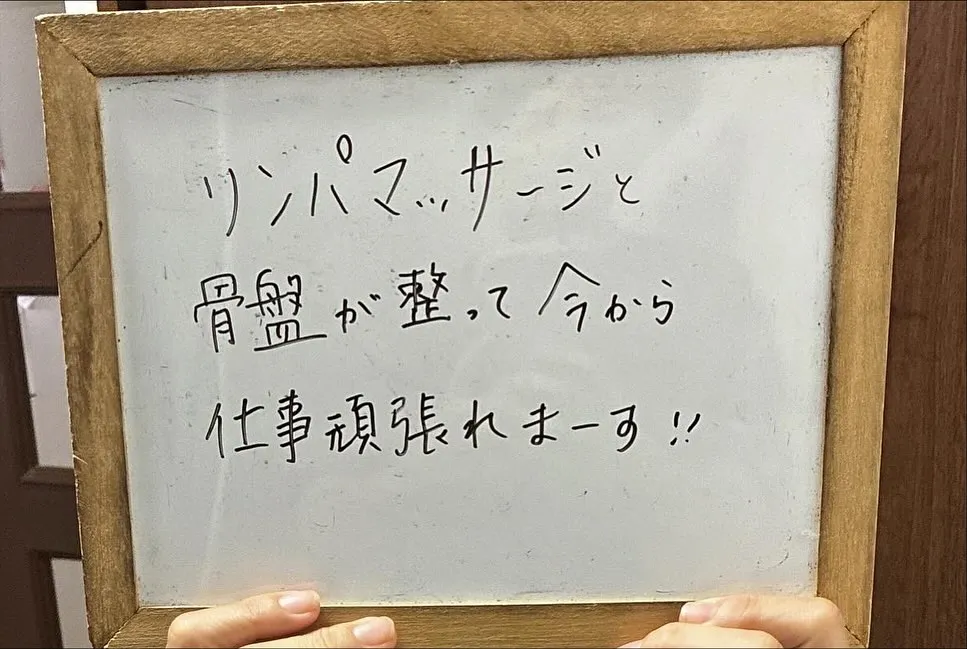 リンパマッサージと
骨盤が整って今から
仕事頑張れまーす!!